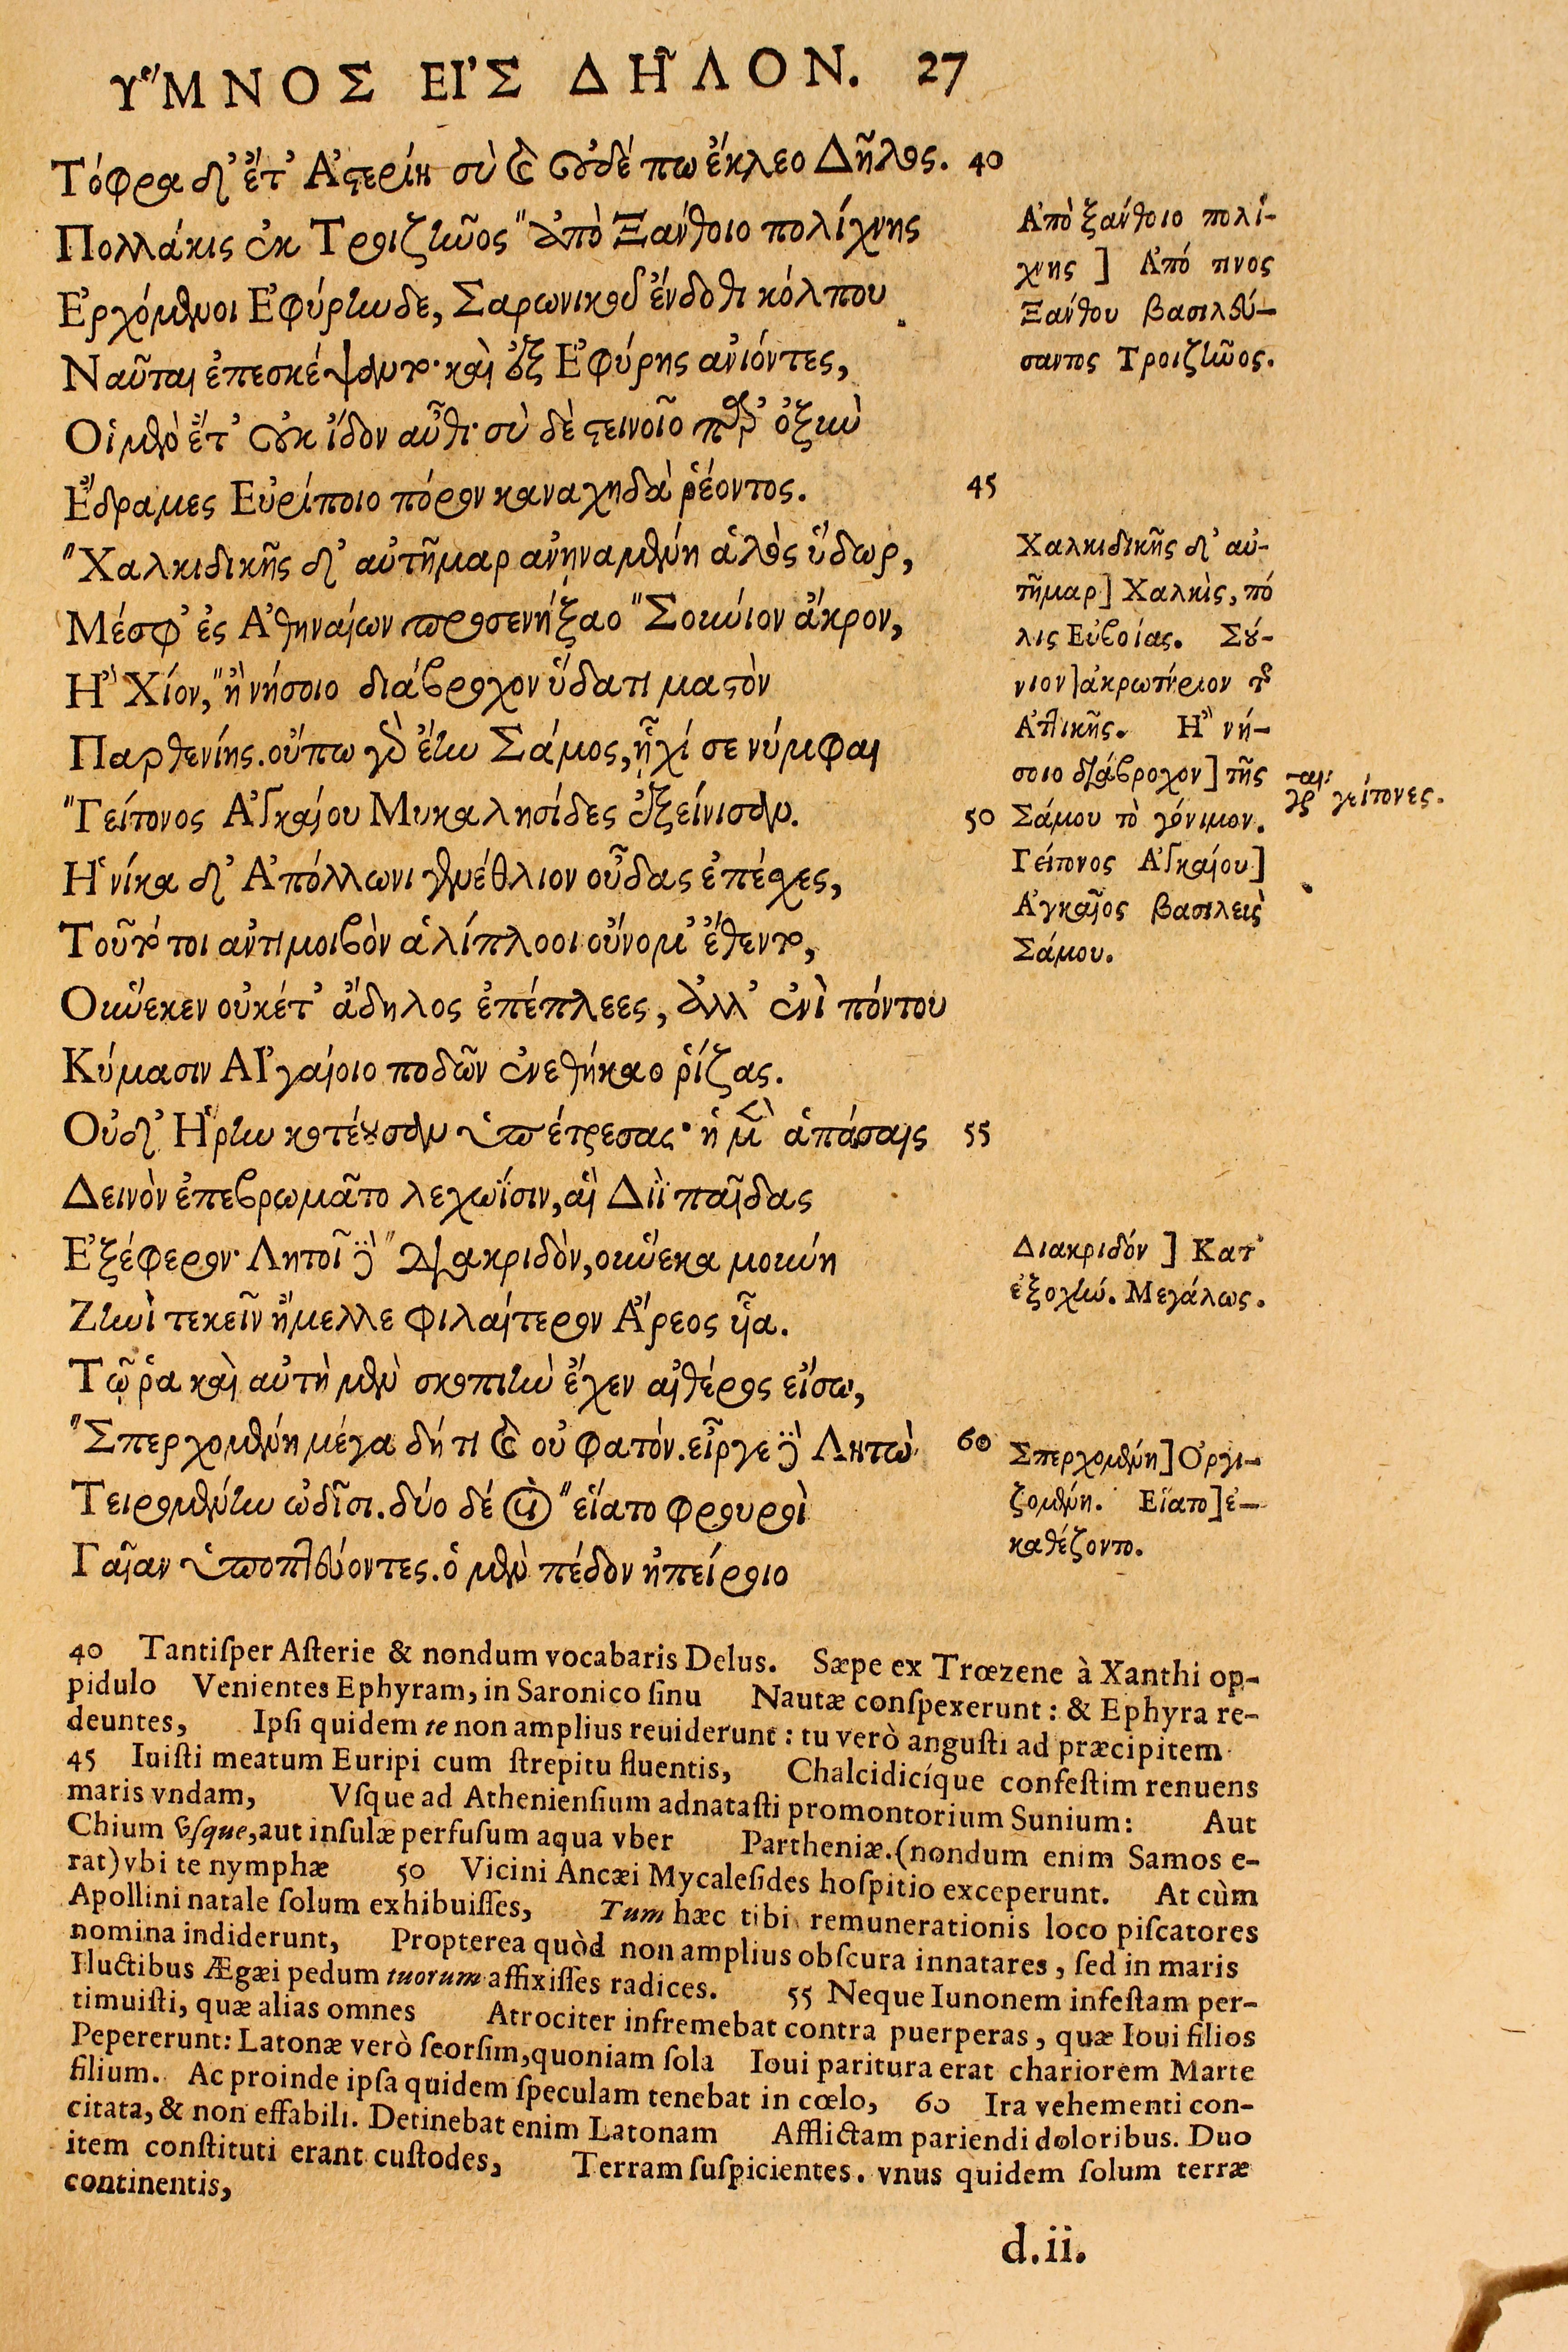 ὝΜΝΟΣ ΕἸΣ ΔΗ͂ΛΟΝ. 27
Τόφρα δ' ἔτ' Ἀστερίη σὺ καὶ οὐδέπω ἔκλεο Δῆλος. 40
Πολλάκις ἐκ Τροιζῆνος "ἀπὸ Ξάνθοιο πολίχνης
Ἐρχόμενοι Ἐφύρηνδε, Σαρωνικοῦ ἔνδοθι κόλπου
Ναῦται ἐπεσκέψαντο· καὶ ἐξ Ἐφύρης ἀνιόντες,
Οἱ μὲν ἔτ' οὐκ ἴδον αὖθι· σὺ δὲ στεινοῖο παρ' ὀξὺν
Ἔδραμες Εὐρίποιο πόρον καναχηδὰ ῥέοντος. 45
"Χαλκιδικῆς δ' αὐτῆμαρ ἀνῃναμένη ἁλὸς ὕδωρ,
Μέσφ' ἐς Ἀθηναίων προσενήξαο "Σούνιον ἄκρον,
Ἢ Χίον, "ἢ νήσοιο διάβροχον ὕδατι μαστὸν
Παρθενίης. οὔπω γὰρ ἔην Σάμος, ᾗχί σε νύμφαι
"Γείτονος Ἀγκαίου Μυκαλησίδες ἐξείνισαν. 50
Ἡνίκα δ' Ἀπόλλωνι γενέθλιον οὖδας ἐπέσχες,
Τοῦτό τοι ἀντιμοιβὸν ἁλίπλοοι οὔνομ' ἔθεντο,
Οὕνεκεν οὐκέτ' ἄδηλος ἐπέπλεες, ἀλλ' ἐνὶ πόντου
Κύμασιν Αἰγαίοιο ποδῶν ἐνεθήκαο ῥίζας.
Οὐδ' Ἥρην κοτέουσαν ὑπέτρεσας· ἡ μὲν ἁπάσαις 55
Δεινὸν ἐπεβρωμᾶτο λεχωΐσιν, αἳ Διῒ παῖδας
Ἐξέφερον· Λητοῖ δὲ "διακριδὸν, οὕνεκα μούνη
Ζηνὶ τεκεῖν ἤμελλε φιλαίτερον Ἄρεος ἷα.
Τῷ ῥα καὶ αὐτὴ μὲν σκοπιὴν ἔχεν αἰθέρος εἴσω,
"Σπερχομένη μέγα δή τι καὶ οὐ φατόν. εἶργε δὲ Λητὼ 60
Τειρομένην ὠδῖσι. δύο δέ οἱ "εἵατο φρουροὶ
Γαῖαν ὑποπτεύοντες. ὁ μὲν πέδον ἠπείροιο
Ἀπὸ ξάνθοιο πολί-
χνης ] Ἀπό τινος
Ξάνθου βασιλεύ-
σαντος Τροιζῆνος.
Χαλκιδικῆς δ' αὐ-
τῆμαρ] Χαλκὶς, πό
λις Εὐβοίας. Σού-
νιον] ἀκρωτήριον τῆς
Ἀττικῆς. Ἢ νή-
σοιο διάβροχον] τῆς
Σάμου τὸ γόνιμον.
Γείτονος Ἀγκαίου]
Ἀγκαῖος βασιλεὺς
Σάμου.
γείτονες.
Διακριδόν ] Κατ'
ἐξοχήν. Μεγάλως.
Σπερχομένη] Ὀργι-
ζομένη. Εἵατο] ἐ-
καθέζοντο.
40 Tantiſper Aſterie & nondum vocabaris Delus. Sæpe ex Trœzene à Xanthi op-
pidulo Venientes Ephyram, in Saronico ſinu Nautæ conſpexerunt: & Ephyra re-
deuntes, Ipſi quidem te non amplius reuiderunt: tu verò anguſti ad præcipitem
45 Iuiſti meatum Euripi cum ſtrepitu fluentis, Chalcidicíque confeſtim renuens
maris vndam, Vſque ad Athenienſium adnataſti promontorium Sunium: Aut
Chium vſque, aut inſulæ perfuſum aqua vber Partheniæ. (nondum enim Samos e-
rat) vbi te nymphæ 50 Vicini Ancæi Mycaleſides hoſpitio exceperunt. At cùm
Apollini natale ſolum exhibuiſſes, Tum hæc tibi remunerationis loco piſcatores
nomina indiderunt, Propterea quòd non amplius obſcura innatares, ſed in maris
Fluctibus Ægæi pedum tuorum affixiſſes radices. 55 Neque Iunonem infeſtam per-
timuiſti, quæ alias omnes Atrociter infremebat contra puerperas, quæ Ioui filios
Pepererunt: Latonæ verò ſeorſim, quoniam ſola Ioui paritura erat chariorem Marte
filium. Ac proinde ipſa quidem ſpeculam tenebat in cœlo, 60 Ira vehementi con-
citata, & non effabili. Detinebat enim Latonam Afflictam pariendi doloribus. Duo
item conſtituti erant cuſtodes, Terram ſuſpicientes. vnus quidem ſolum terræ
continentis,
d.ii.